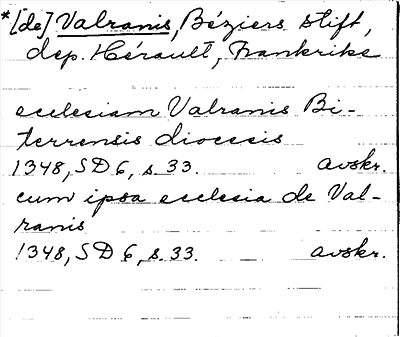 *[de] Valranis, Béziers stift,
dep. Hérault, Frankrike
ecclesiam Valranis Bi-
terrensis diocesis
1348, SD 6, s. 33. avskr.
cum ipsa ecclesia de Val-
ranis
1348, SD 6, s. 33. avskr.